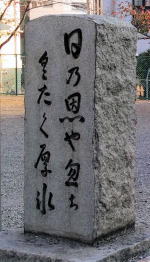 日乃恩や忽ち
くたく厚氷